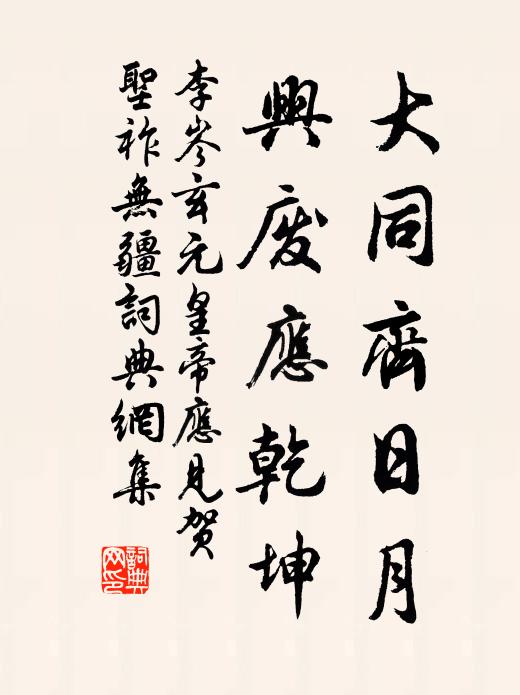 大同齊日月
興廢應乾坤
李岑玄元皇帝應見賀
聖祚無疆詞典網集
詞典網印